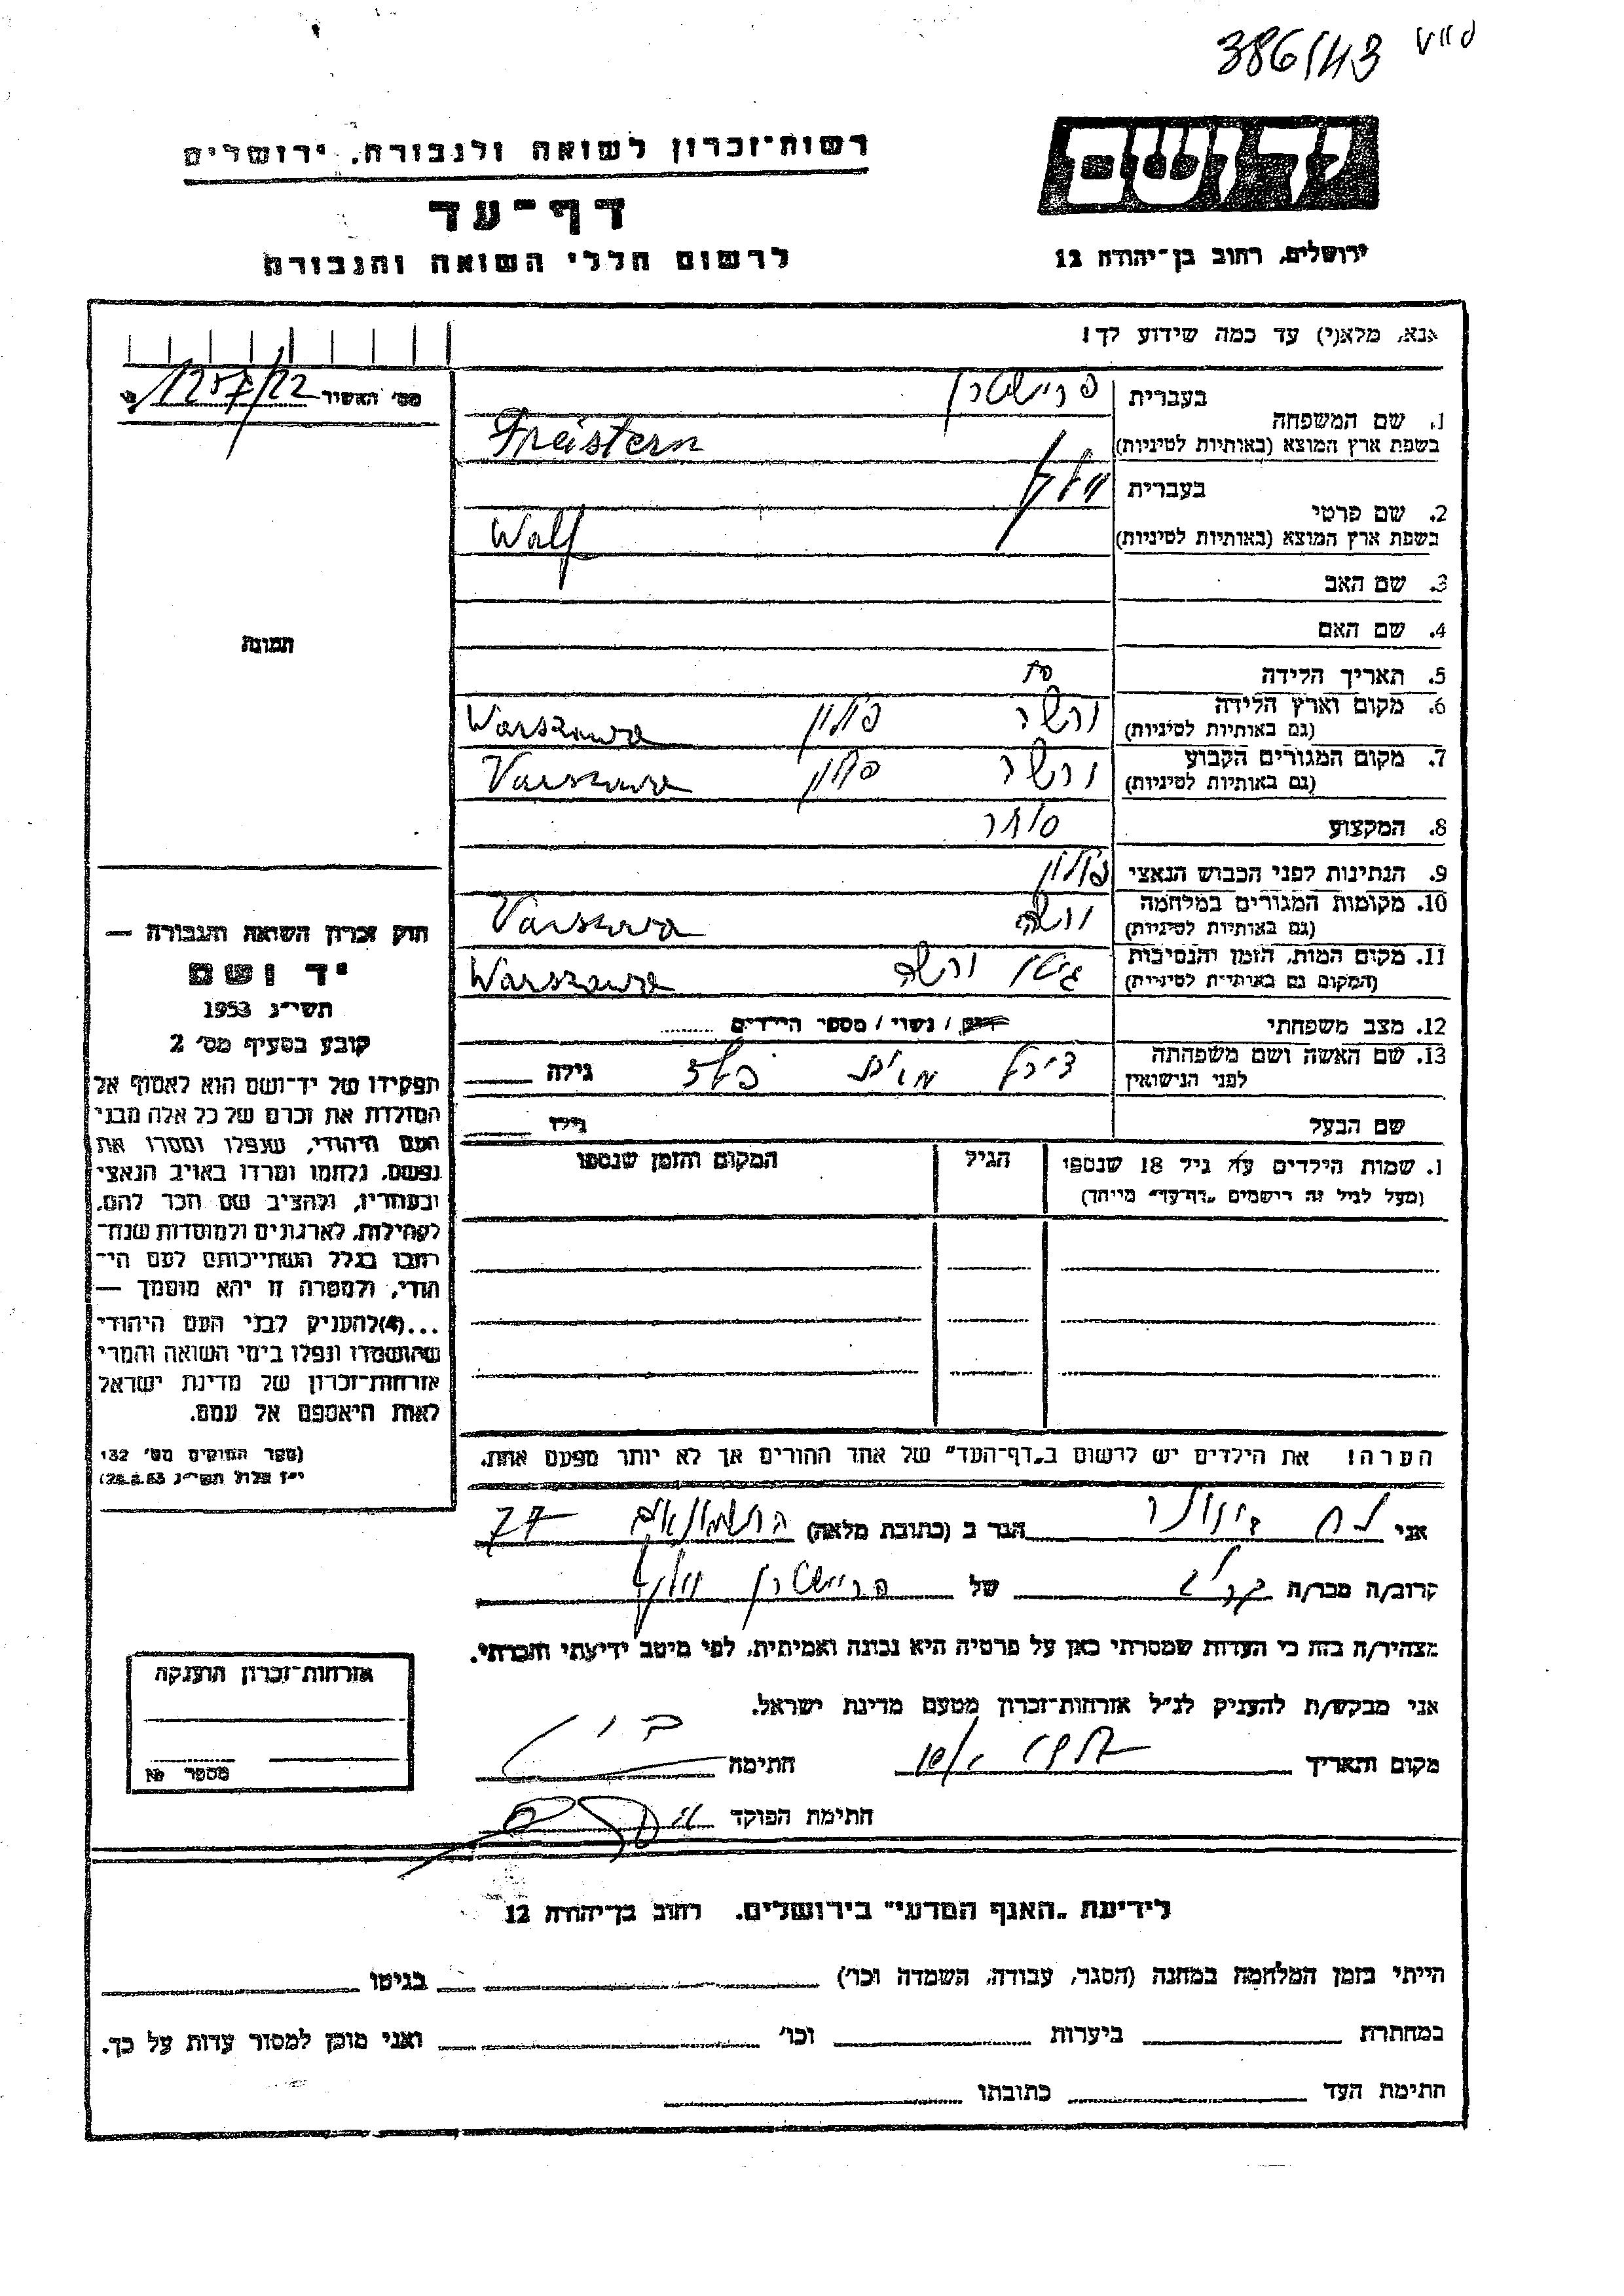 386/43
רשות־זכרון לשואה ולגבורה, ירושלים
יד ושם
דף־עד
לרשום חללי השואה והגבורה
ירושלים, רחוב בן־יהודה 12
אנא, מלא(י) עד כמה שידוע לך!
מס' האסיר
בעברית פרישטרן
1. שם המשפחה
בשפת ארץ המוצא (באותיות לטיניות) Freistern
בעברית וולף
2. שם פרטי
בשפת ארץ המוצא (באותיות לטיניות) Wolf
3. שם האב
4. שם האם
תמונה
5. תאריך הלידה
6. מקום וארץ הלידה (גם באותיות לטיניות) ורשה פולין Warszawa
7. מקום המגורים הקבוע (גם באותיות לטיניות) ורשה פולין Varszawa
8. המקצוע סוחר
9. הנתינות לפני הכבוש הנאצי פולין
10. מקומות המגורים במלחמה (גם באותיות לטיניות) ורשה Varszawa
11. מקום המות, הזמן והנסיבות (המקום גם באותיות לטיניות) גיטו ורשה Warszawa
12. מצב משפחתי רווק / נשוי / מספר הילדים
13. שם האשה ושם משפחתה לפני הנישואין גילה
שם הבעל גילו
1. שמות הילדים עד גיל 18 שנספו הגיל המקום והזמן שנספו
(מעל לגיל זה רישמים "דף־עד" מייחד)
חוק זכרון השואה והגבורה —
יד ושם
תשי"ג 1953
קובע בסעיף מס' 2
תפקידו של יד־ושם הוא לאסוף אל
המולדת את זכרם של כל אלה מבני
העם היהודי, שנפלו ומסרו את
נפשם, נלחמו ומרדו באויב הנאצי
ובעוזריו, ולהציב שם וזכר להם,
לקהילות, לארגונים ולמוסדות שנח־
רבו בגלל השתייכותם לעם הי־
הודי, ולמטרה זו יהא מוסמך —
...(4)להעניק לבני העם היהודי
שהושמדו ונפלו בימי השואה והמרי
אזרחות־זכרון של מדינת ישראל
לאות היאספם אל עמם.
(ספר החוקים מס' 132
י"ז אלול תשי"ג 28.8.53)
הערה! את הילדים יש לרשום ב"דף־העד" של אחד ההורים אך לא יותר מפעם אחת.
אני הגר ב (כתובת מלאה) החשמונאים 77
קרוב/ה מכר/ה של פריישטרן וולף
מצהיר/ה בזה כי העדות שמסרתי כאן על פרטיה היא נכונה ואמיתית, לפי מיטב ידיעתי והכרתי.
אני מבקש/ת להעניק לנ"ל אזרחות־זכרון מטעם מדינת ישראל.
מקום ותאריך חתימה
חתימת הפוקד
אזרחות־זכרון הוענקה
מספר №
לידיעת "האגף המדעי" בירושלים, רחוב בן־יהודה 12
הייתי בזמן המלחמה במחנה (הסגר, עבודה, השמדה וכו') בגיטו
במחתרת ביערות וכו' ואני מוכן למסור עדות על כך.
חתימת העד כתובתו